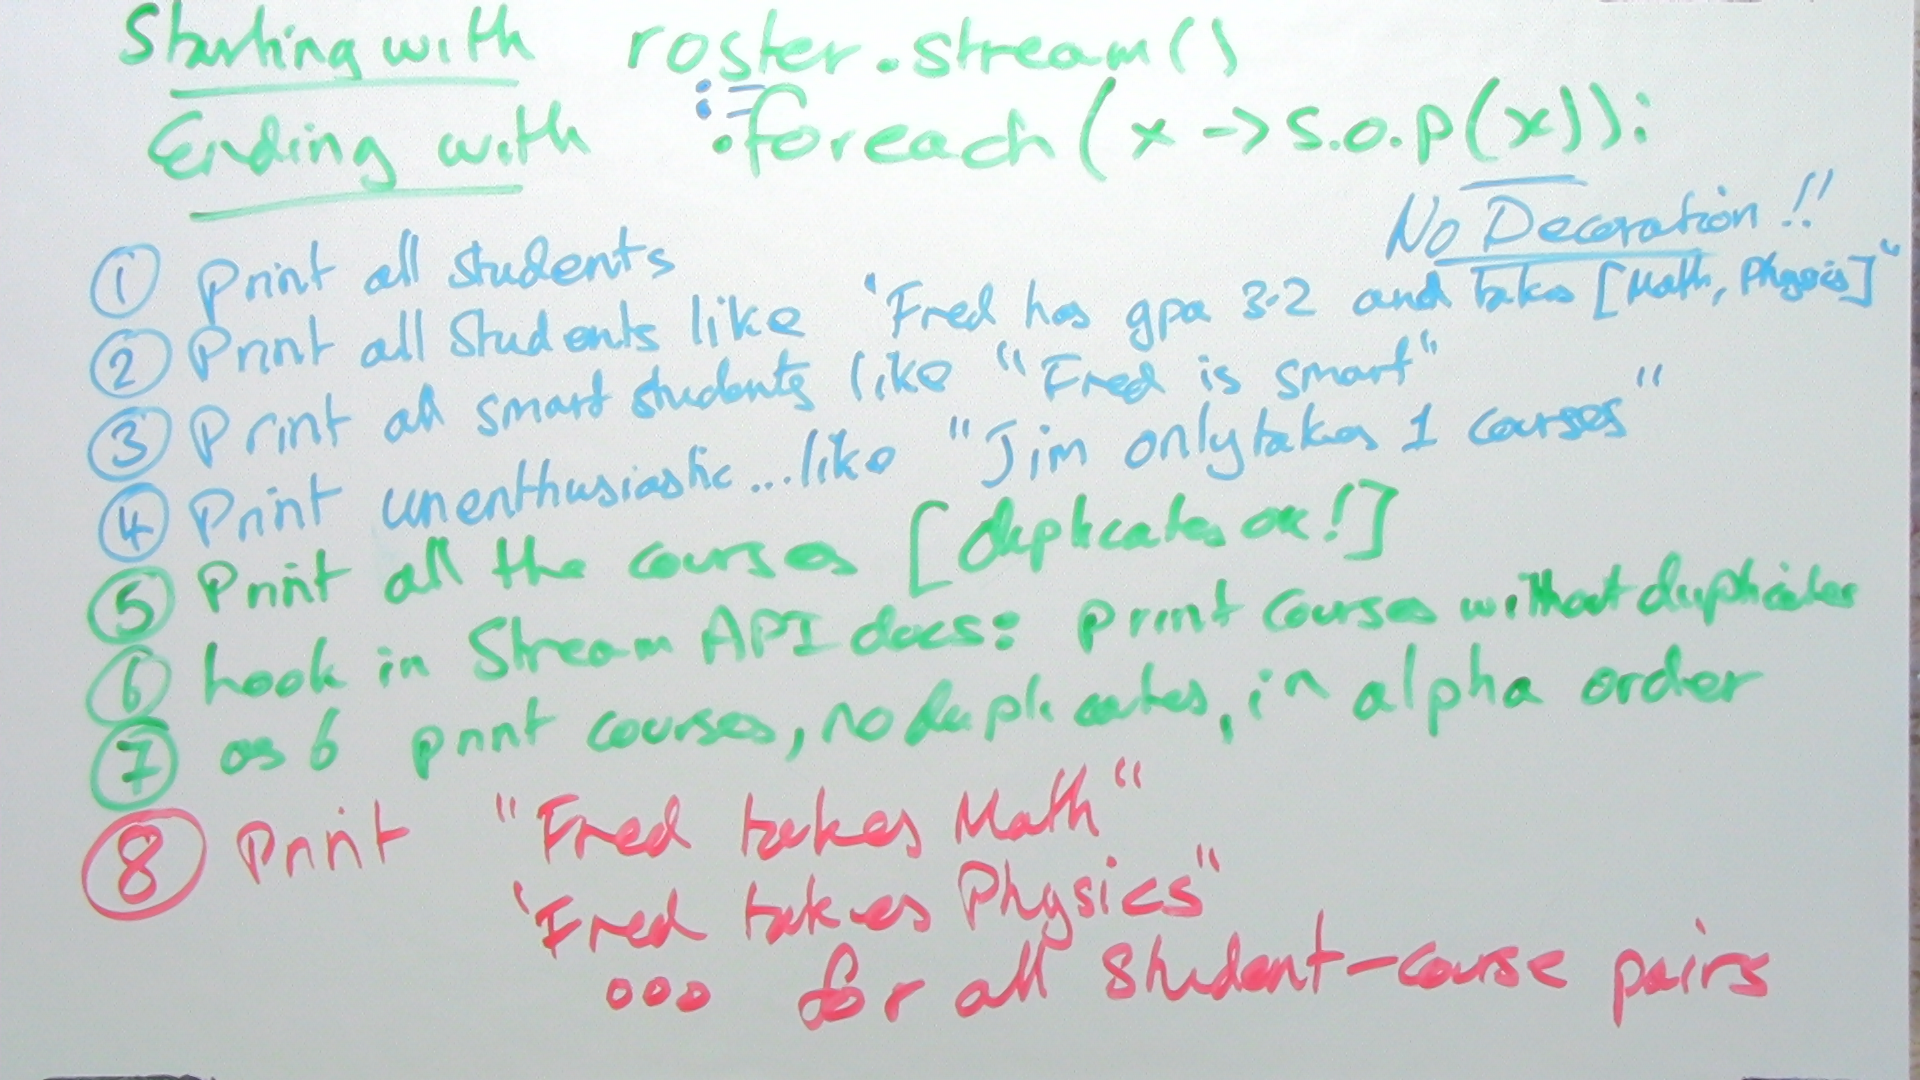 Starting with roster.stream()
Ending with .foreach(x -> S.o.p(x));
No Decoration!!
① Print all students
② Print all Students like "Fred has gpa 3.2 and takes [Math, Physics]"
③ Print all smart students like "Fred is smart"
④ Print unenthusiastic...like "Jim only takes 1 courses"
⑤ Print all the courses [duplicates ok!]
⑥ Look in Stream API docs: print courses without duplicates
⑦ as 6 print courses, no duplicates, in alpha order
⑧ Print "Fred takes Math"
"Fred takes Physics"
ooo for all student-course pairs